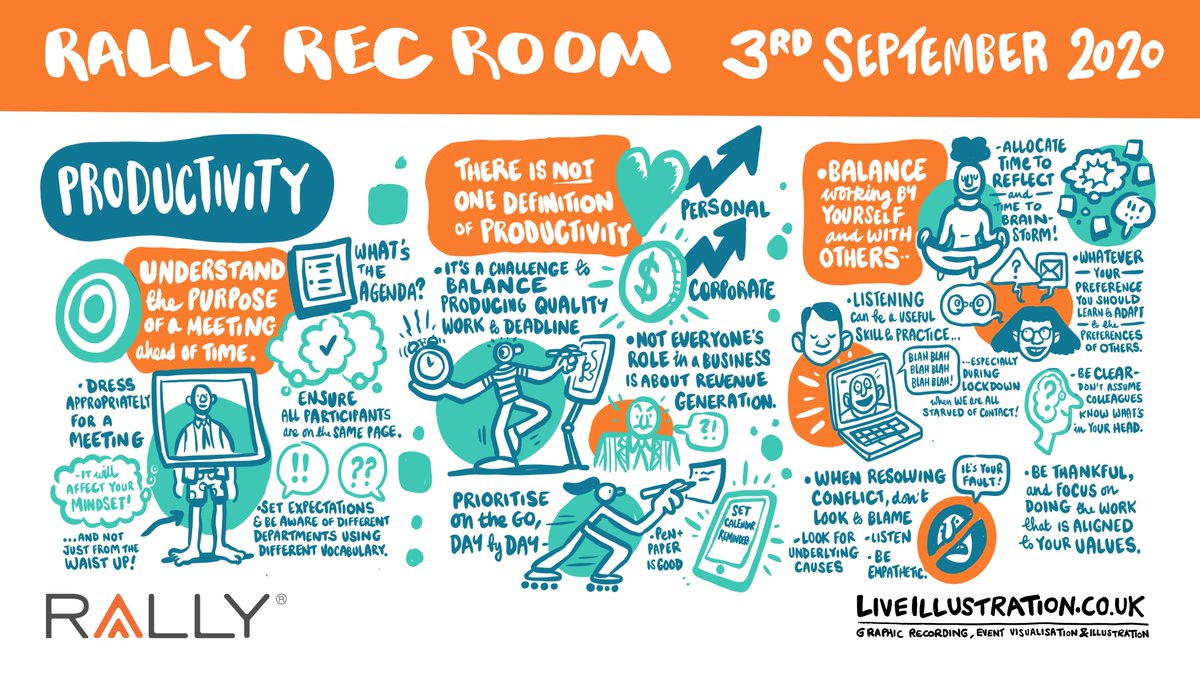 RALLY REC ROOM
3RD SEPTEMBER 2020
PRODUCTIVITY
UNDERSTAND
the PURPOSE
OF A MEETING
ahead OF TIME.
WHAT'S
THE
AGENDA?
ENSURE
ALL PARTICIPANTS
are on the SAME PAGE.
• DRESS
APPROPRIATELY
FOR A
MEETING
-IT will
AFFECT YOUR
MINDSET!
....AND NOT
JUST FROM THE
WAIST UP!
!!
??
•SET EXPECTATIONS
& BE AWARE OF DIFFERENT
DEPARTMENTS USING
DIFFERENT VOCABULARY.
THERE IS NOT
ONE DEFINITION
OF PRODUCTIVITY
PERSONAL
$
CORPORATE
•IT'S A CHALLENGE to
BALANCE
PRODUCING QUALITY
WORK & DEADLINE
•NOT EVERYONE'S
ROLE in A BUSINESS
IS ABOUT REVENUE
GENERATION.
?!
PRIORITISE
ON the GO,
DAY by DAY-
•PEN+
PAPER
IS GOOD
SET
CALENDAR
REMINDER
•BALANCE
working BY
YOURSELF
and WITH
OTHERS..
-ALLOCATE
TIME TO
REFLECT
and
TIME TO
BRAIN-
STORM!
!!
?
•WHATEVER
YOUR
PREFERENCE
YOU SHOULD
LEARN & ADAPT
to the
PREFERENCES
OF OTHERS.
•LISTENING
can be A USEFUL
SKILL & PRACTICE...
BLAH BLAH
BLAH BLAH
BLAH BLAH!
...ESPECIALLY
DURING
LOCKDOWN
when WE ARE ALL
STARVED OF CONTACT!
?
•BE CLEAR-
DON'T ASSUME
COLLEAGUES
KNOW WHAT'S
in YOUR HEAD.
•WHEN RESOLVING
CONFLICT, don't
LOOK to BLAME
-LOOK FOR
UNDERLYING
CAUSES
-LISTEN
-BE
EMPATHETIC.
IT'S YOUR
FAULT!
•BE THANKFUL,
and FOCUS on
DOING the WORK
that IS ALIGNED
to YOUR VALUES.
RALLY®
LIVEILLUSTRATION.CO.UK
GRAPHIC RECORDING, EVENT VISUALISATION & ILLUSTRATION